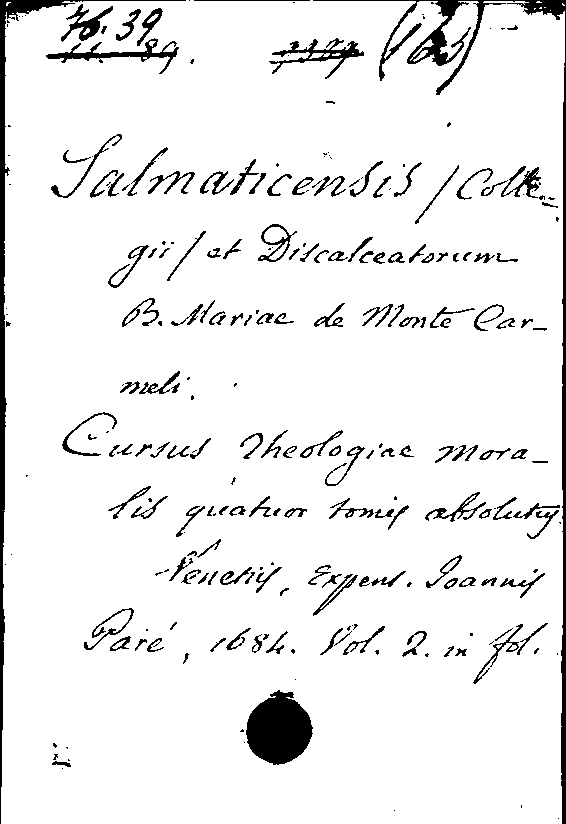 76. 39
11. 89. (165)
Salmaticensis / Colle-
gii / et Discalceatorum
B. Mariae de Monte Car-
meli.
Cursus Theologiae mora-
lis quatuor tomis absolutus
Venetiis, Expens. Joannis
Paré, 1684. Vol. 2. in fol.